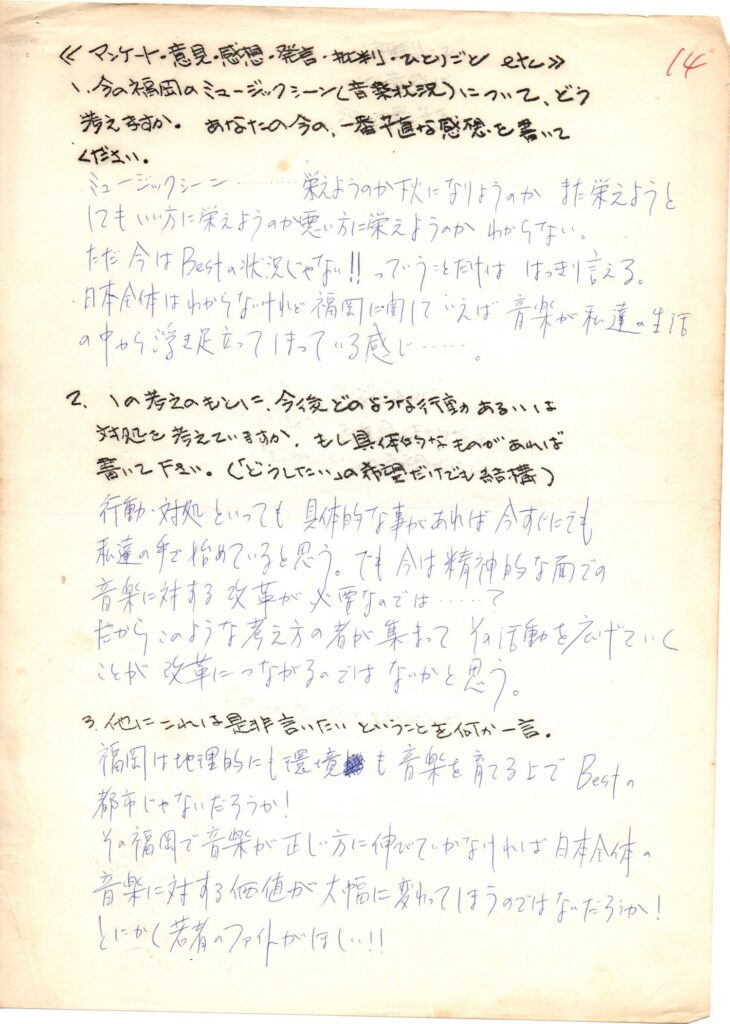 14
≪アンケート・意見・感想・発言・批判・ひとりごと etc≫
1、今の福岡のミュージックシーン(音楽状況)について、どう
考えますか。あなたの今の、一番卒直な感想を書いて
ください。
ミュージックシーン………栄えようのか下火になりようのか また栄えようと
してもいい方に栄えようのか悪い方に栄えようのか わからない。
ただ今はBestの状況じゃない!!っていうことだけは はっきり言える。
日本全体はわからないけれど福岡に関していえば 音楽が私達の生活
の中から浮き足立ってしまっている感じ……。
2、1の考えのもとに、今後どのような行動あるいは
対処を考えていますか。もし具体的なものがあれば
書いて下さい。(「どうしたい」の希望だけでも結構)
行動・対処といっても 具体的な事があれば今すぐにでも
私達の手で始めていると思う。でも今は精神的な面での
音楽に対する改革が必要なのでは……?
だからこのような考え方の者が集まって その活動を広げていく
ことが 改革につながるのではないかと思う。
3、他にこれは是非言いたいということを何か一言。
福岡は地理的にも環境も音楽を育てる上でBestの
都市じゃないだろうか!
その福岡で音楽が正しい方に伸びていかなければ日本全体の
音楽に対する価値が大幅に変わってしまうのではないだろうか!
とにかく若者のファイトがほしい!!